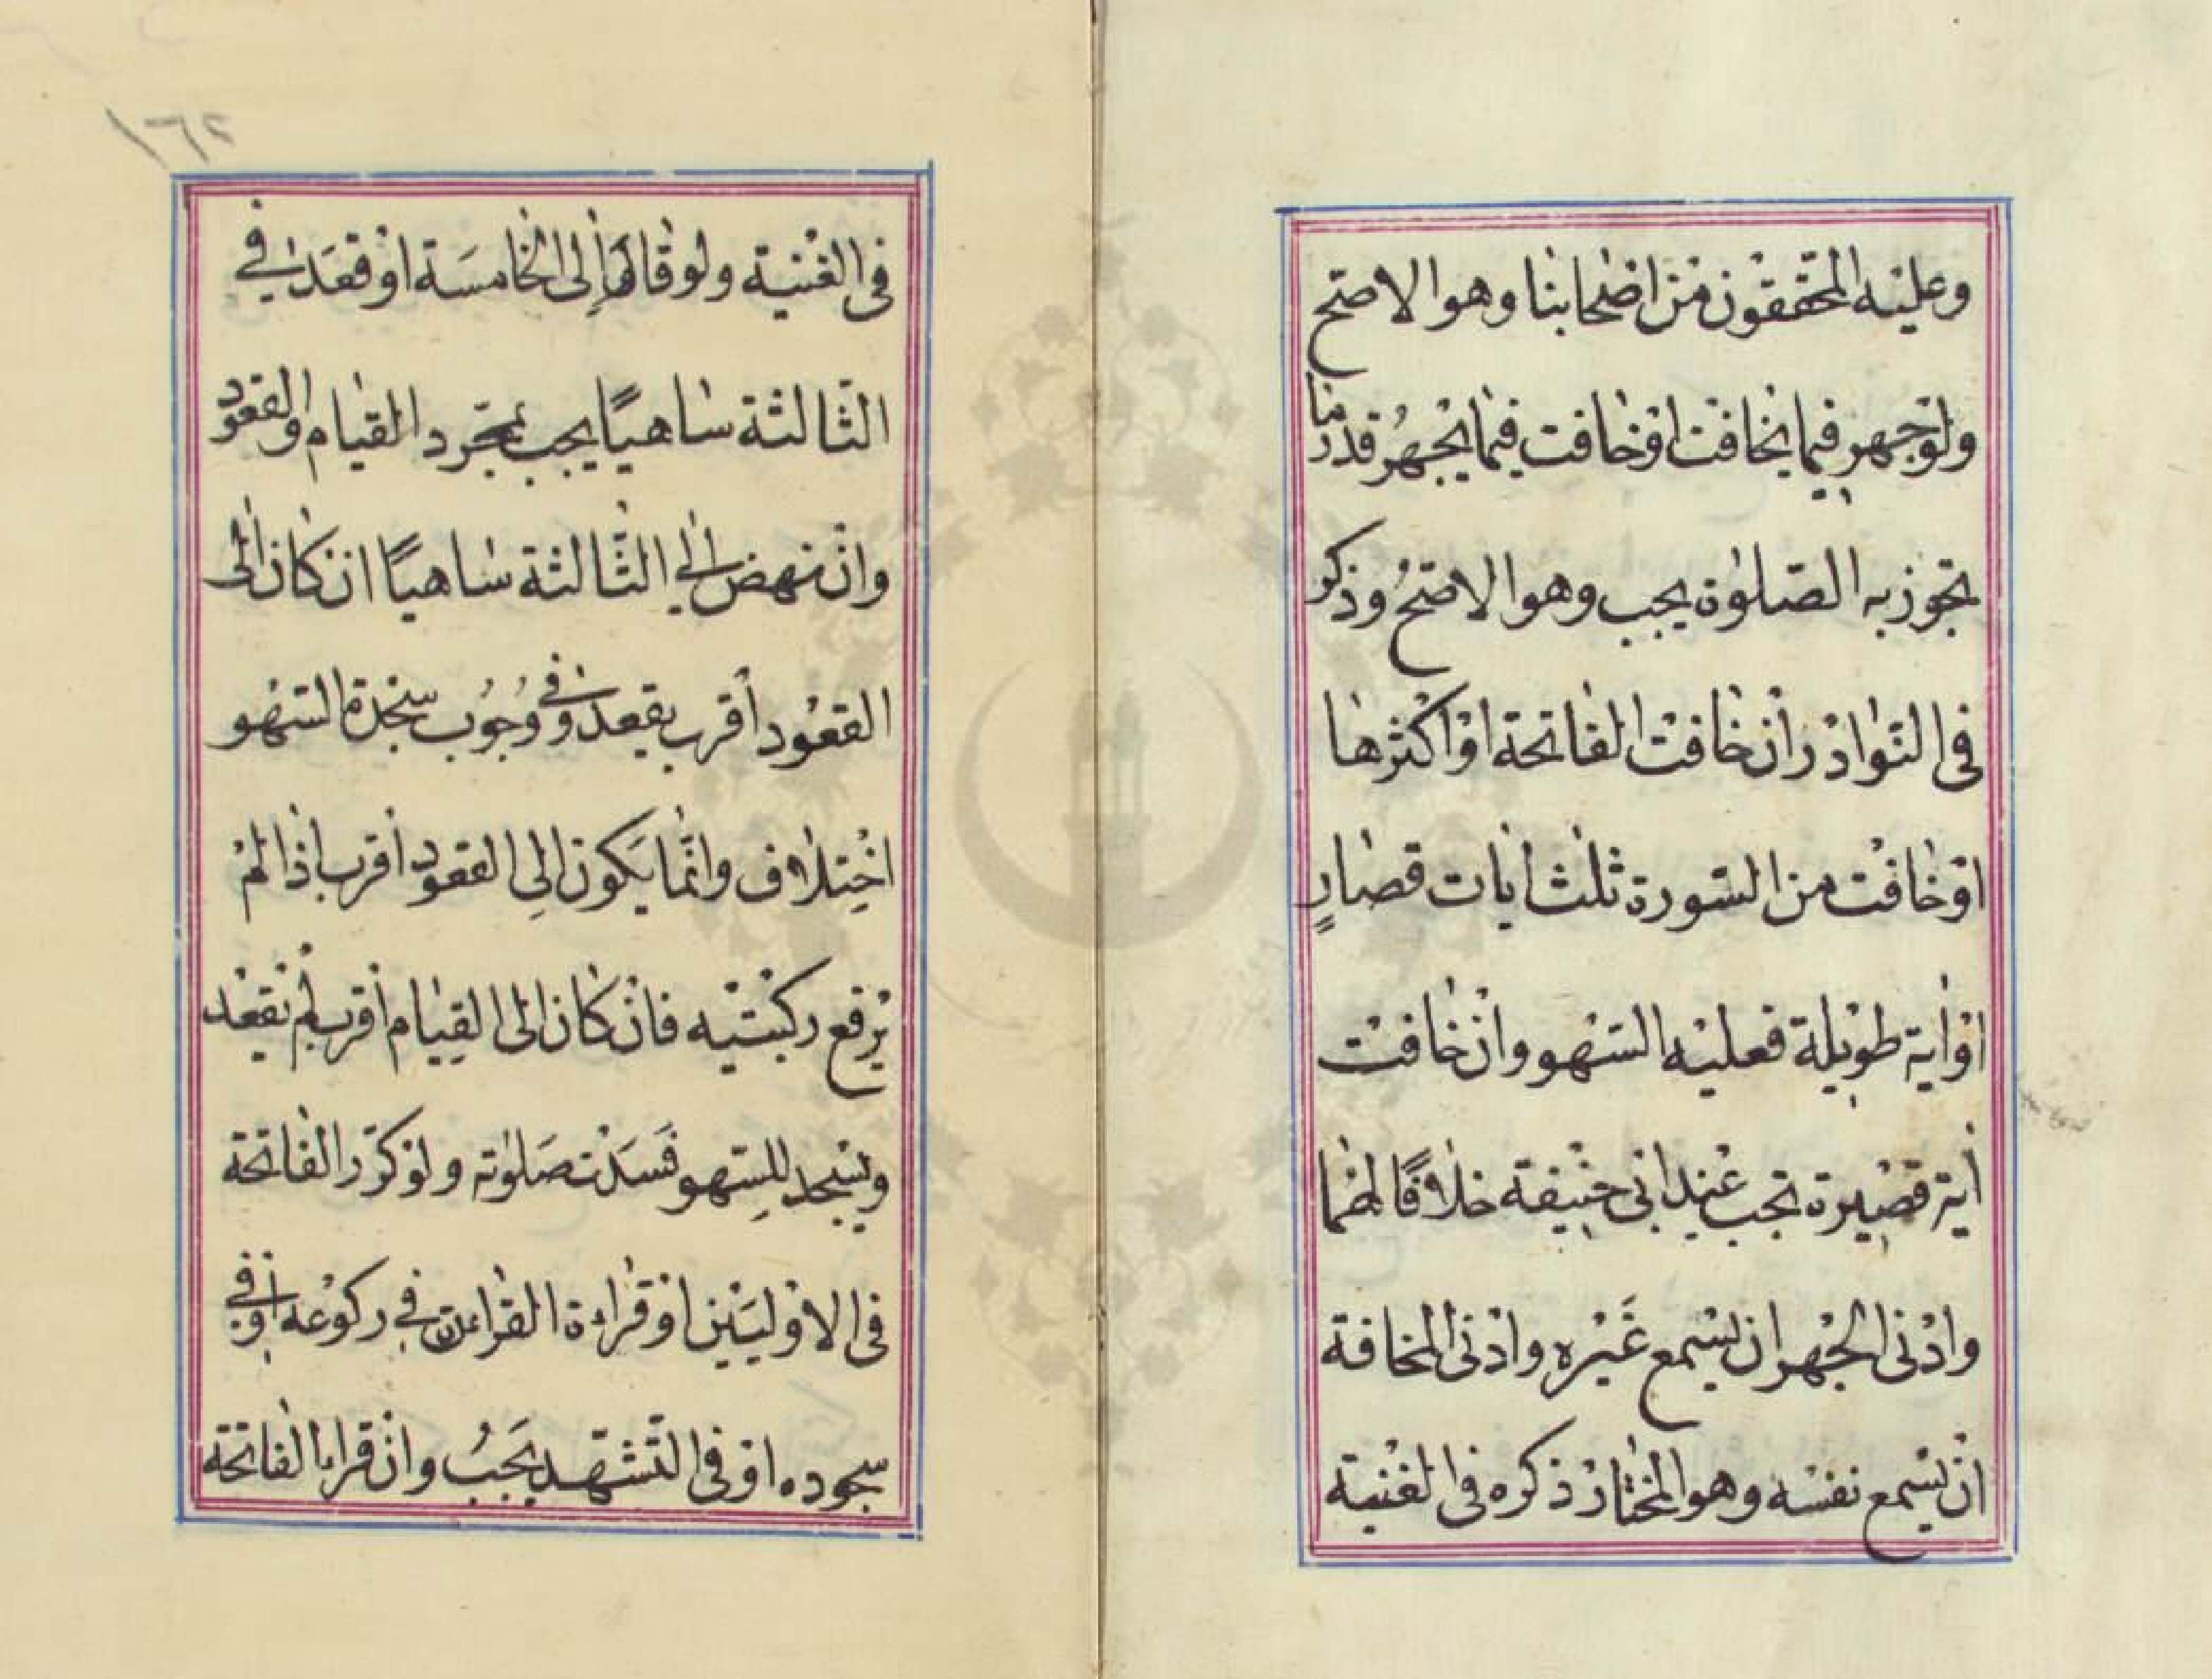 وعليه المحققون من اصحابنا وهو الاصح
ولو جهر فيما يخافت او خافت فيما يجهر قدر ما
تجوز به الصلوة يجب وهو الاصح وذكر
فى النوادر ان خافت الفاتحة او اكثرها
او خافت من السورة ثلث ايات قصار
او اية طويلة فعليه السهو وان خافت
اية قصيرة تجب عند ابى حنيفة خلافا لهما
وادنى الجهر ان يسمع غيره وادنى المخافة
ان يسمع نفسه وهو المختار ذكره فى الغنية
١٦٢
فى الغنية ولو قام الى الخامسة او قعد فى
الثالثة ساهيا يجب بمجرد القيام والقعود
وان نهض الى الثالثة ساهيا ان كان الى
القعود اقرب يقعد وفى وجوب سجدة السهو
اختلاف وانما يكون الى القعود اقرب اذا لم
يرفع ركبتيه فان كان الى القيام اقرب لم يقعد
ويسجد للسهو فسدت صلوته ولو كرر الفاتحة
فى الاوليين او قراءة القراءت فى ركوعه او فى
سجوده او فى التشهد يجب وان قرا الفاتحة